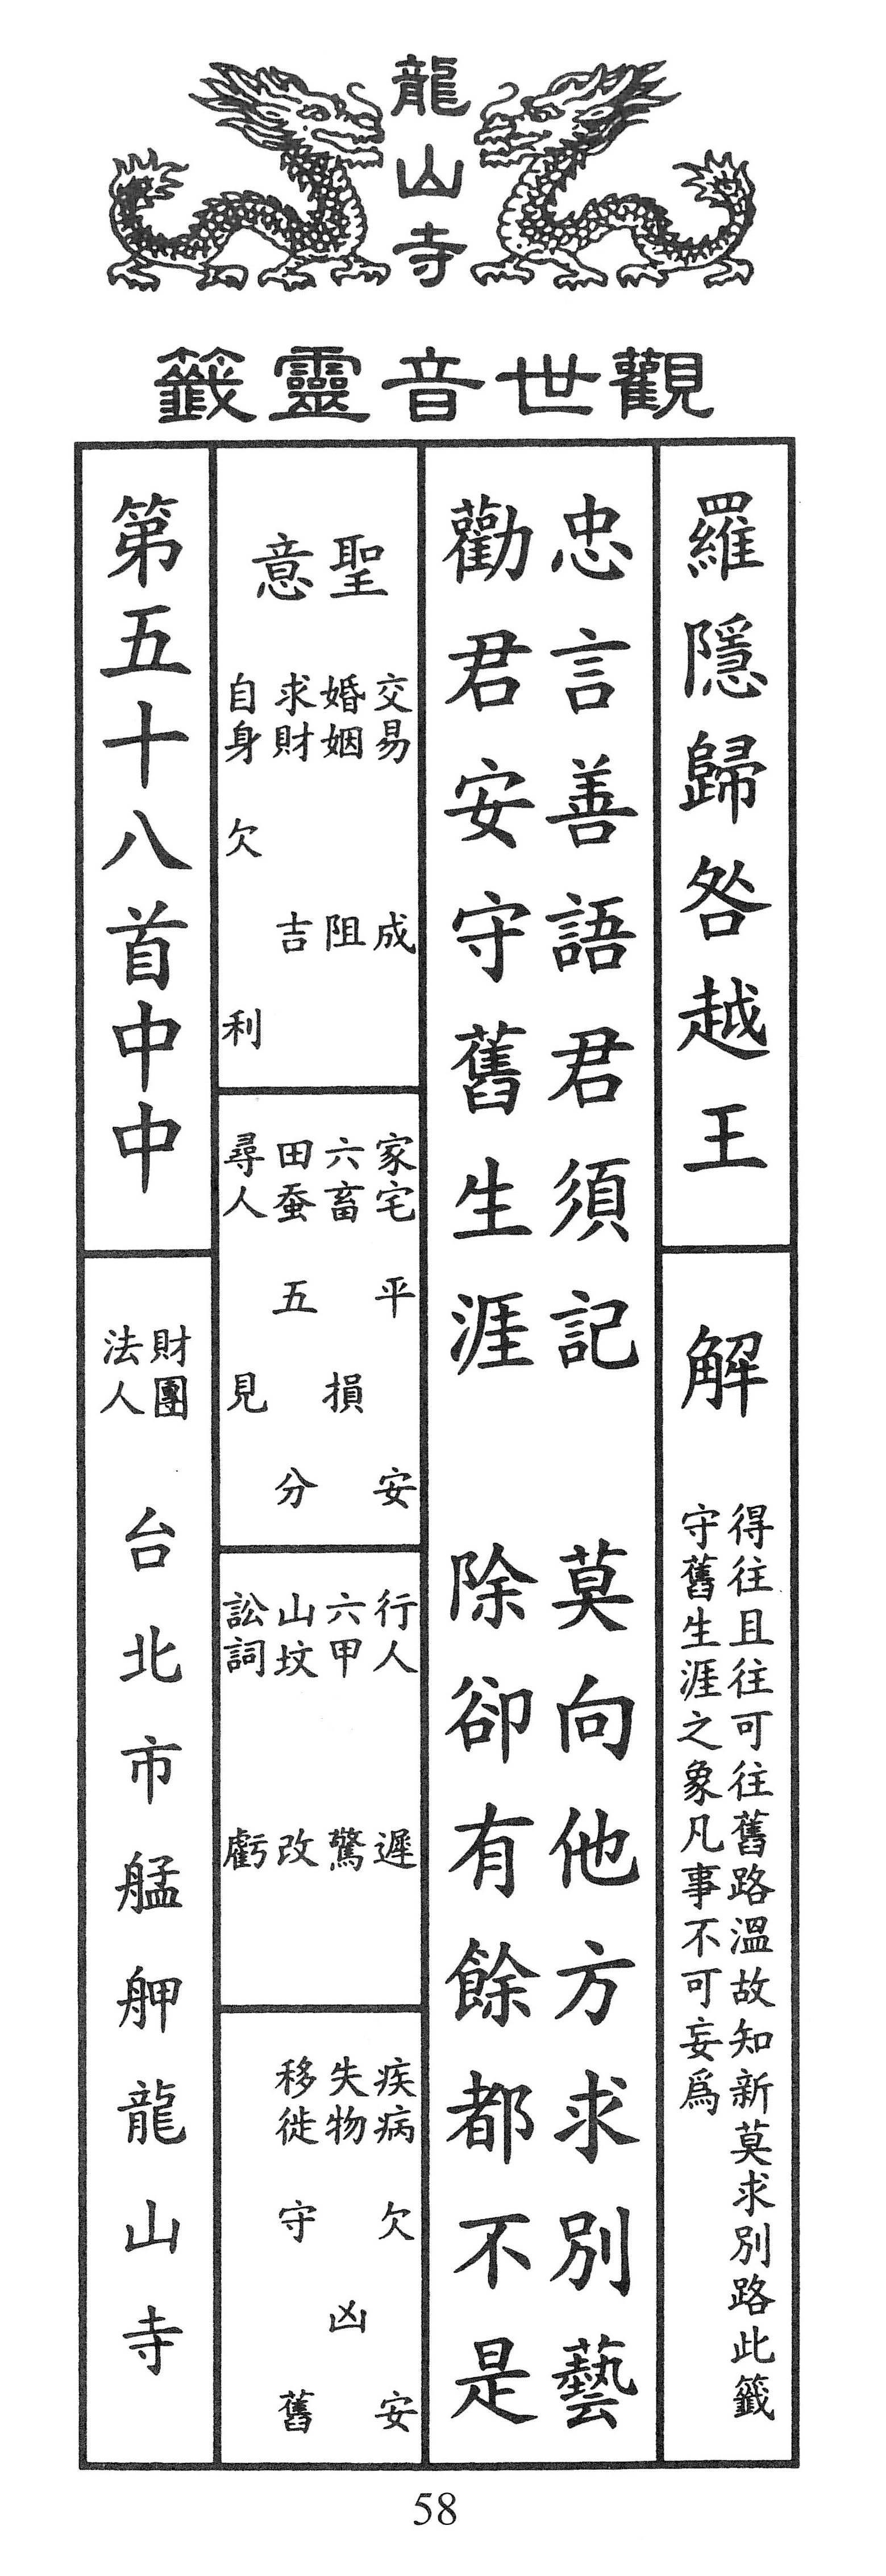 龍山寺
觀世音靈籤
羅隱歸咎越王
解
得往且往可往舊路溫故知新莫求別路此籤
守舊生涯之象凡事不可妄爲
忠言善語君須記　莫向他方求別藝
勸君安守舊生涯　除卻有餘都不是
聖意
交易　成
婚姻　阻
求財　吉
自身　欠利
家宅　平安
六畜　損
田蚕　五分
尋人　見
行人　遲
六甲　驚
山坟　改
訟詞　虧
疾病　欠安
失物　凶
移徙　守舊
第五十八首中中
財團
法人
台北市艋舺龍山寺
58